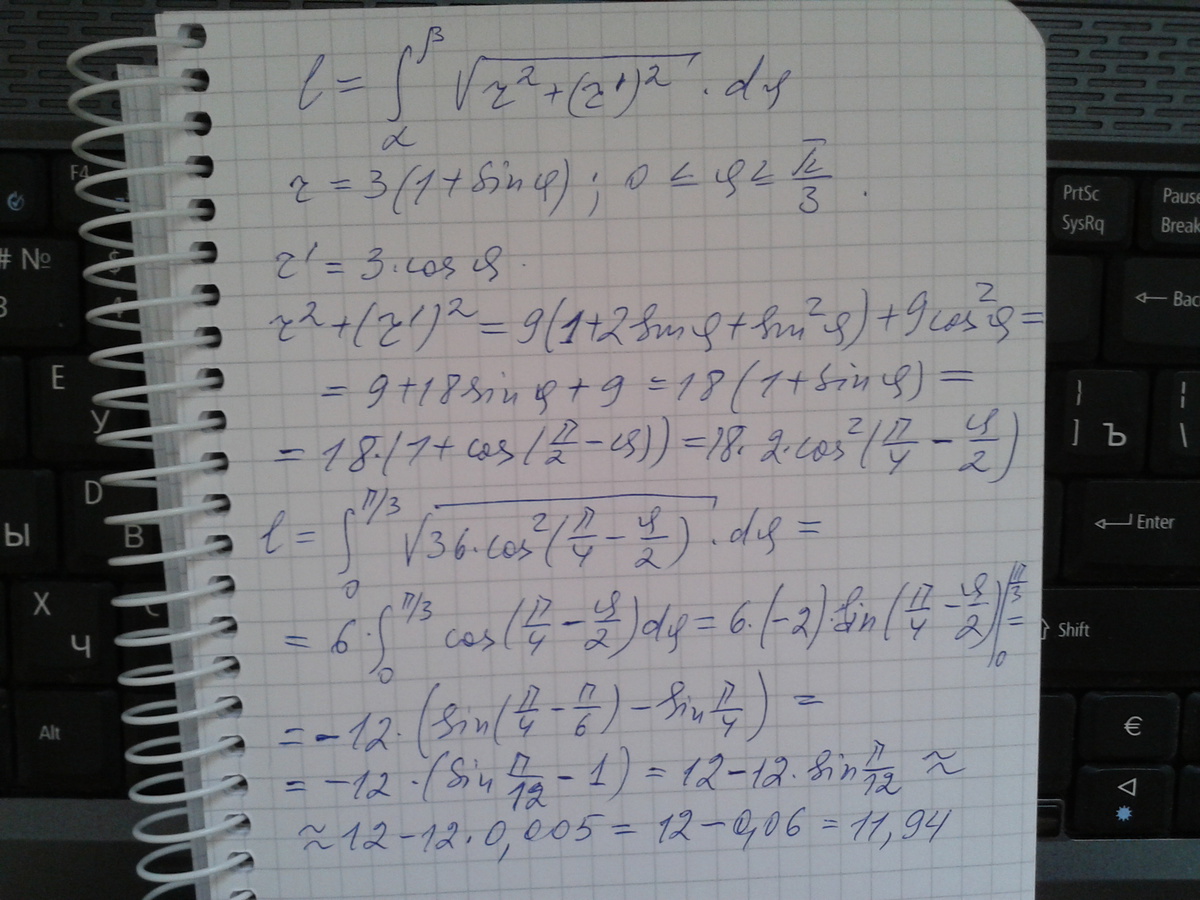 l = ∫_α^β √(r² + (r')²) · dφ
r = 3(1 + sin φ); 0 ≤ φ ≤ π/3.
r' = 3·cos φ.
r² + (r')² = 9(1 + 2 sin φ + sin² φ) + 9 cos² φ =
= 9 + 18 sin φ + 9 = 18(1 + sin φ) =
= 18·(1 + cos(π/2 − φ)) = 18·2·cos²(π/4 − φ/2)
l = ∫_0^{π/3} √(36·cos²(π/4 − φ/2)) · dφ =
= 6·∫_0^{π/3} cos(π/4 − φ/2) dφ = 6·(−2)·sin(π/4 − φ/2)|_0^{π/3} =
= −12·(sin(π/4 − π/6) − sin π/4) =
= −12·(sin π/12 − 1) = 12 − 12·sin π/12 ≈
≈ 12 − 12·0,005 = 12 − 0,06 = 11,94
F4
PrtSc
SysRq
Pause
Break
# №
3
$
4
Bac
E
У
}
]
Ъ
|
\
D
В
Ы
Enter
X
Ч
С
Shift
Alt
€